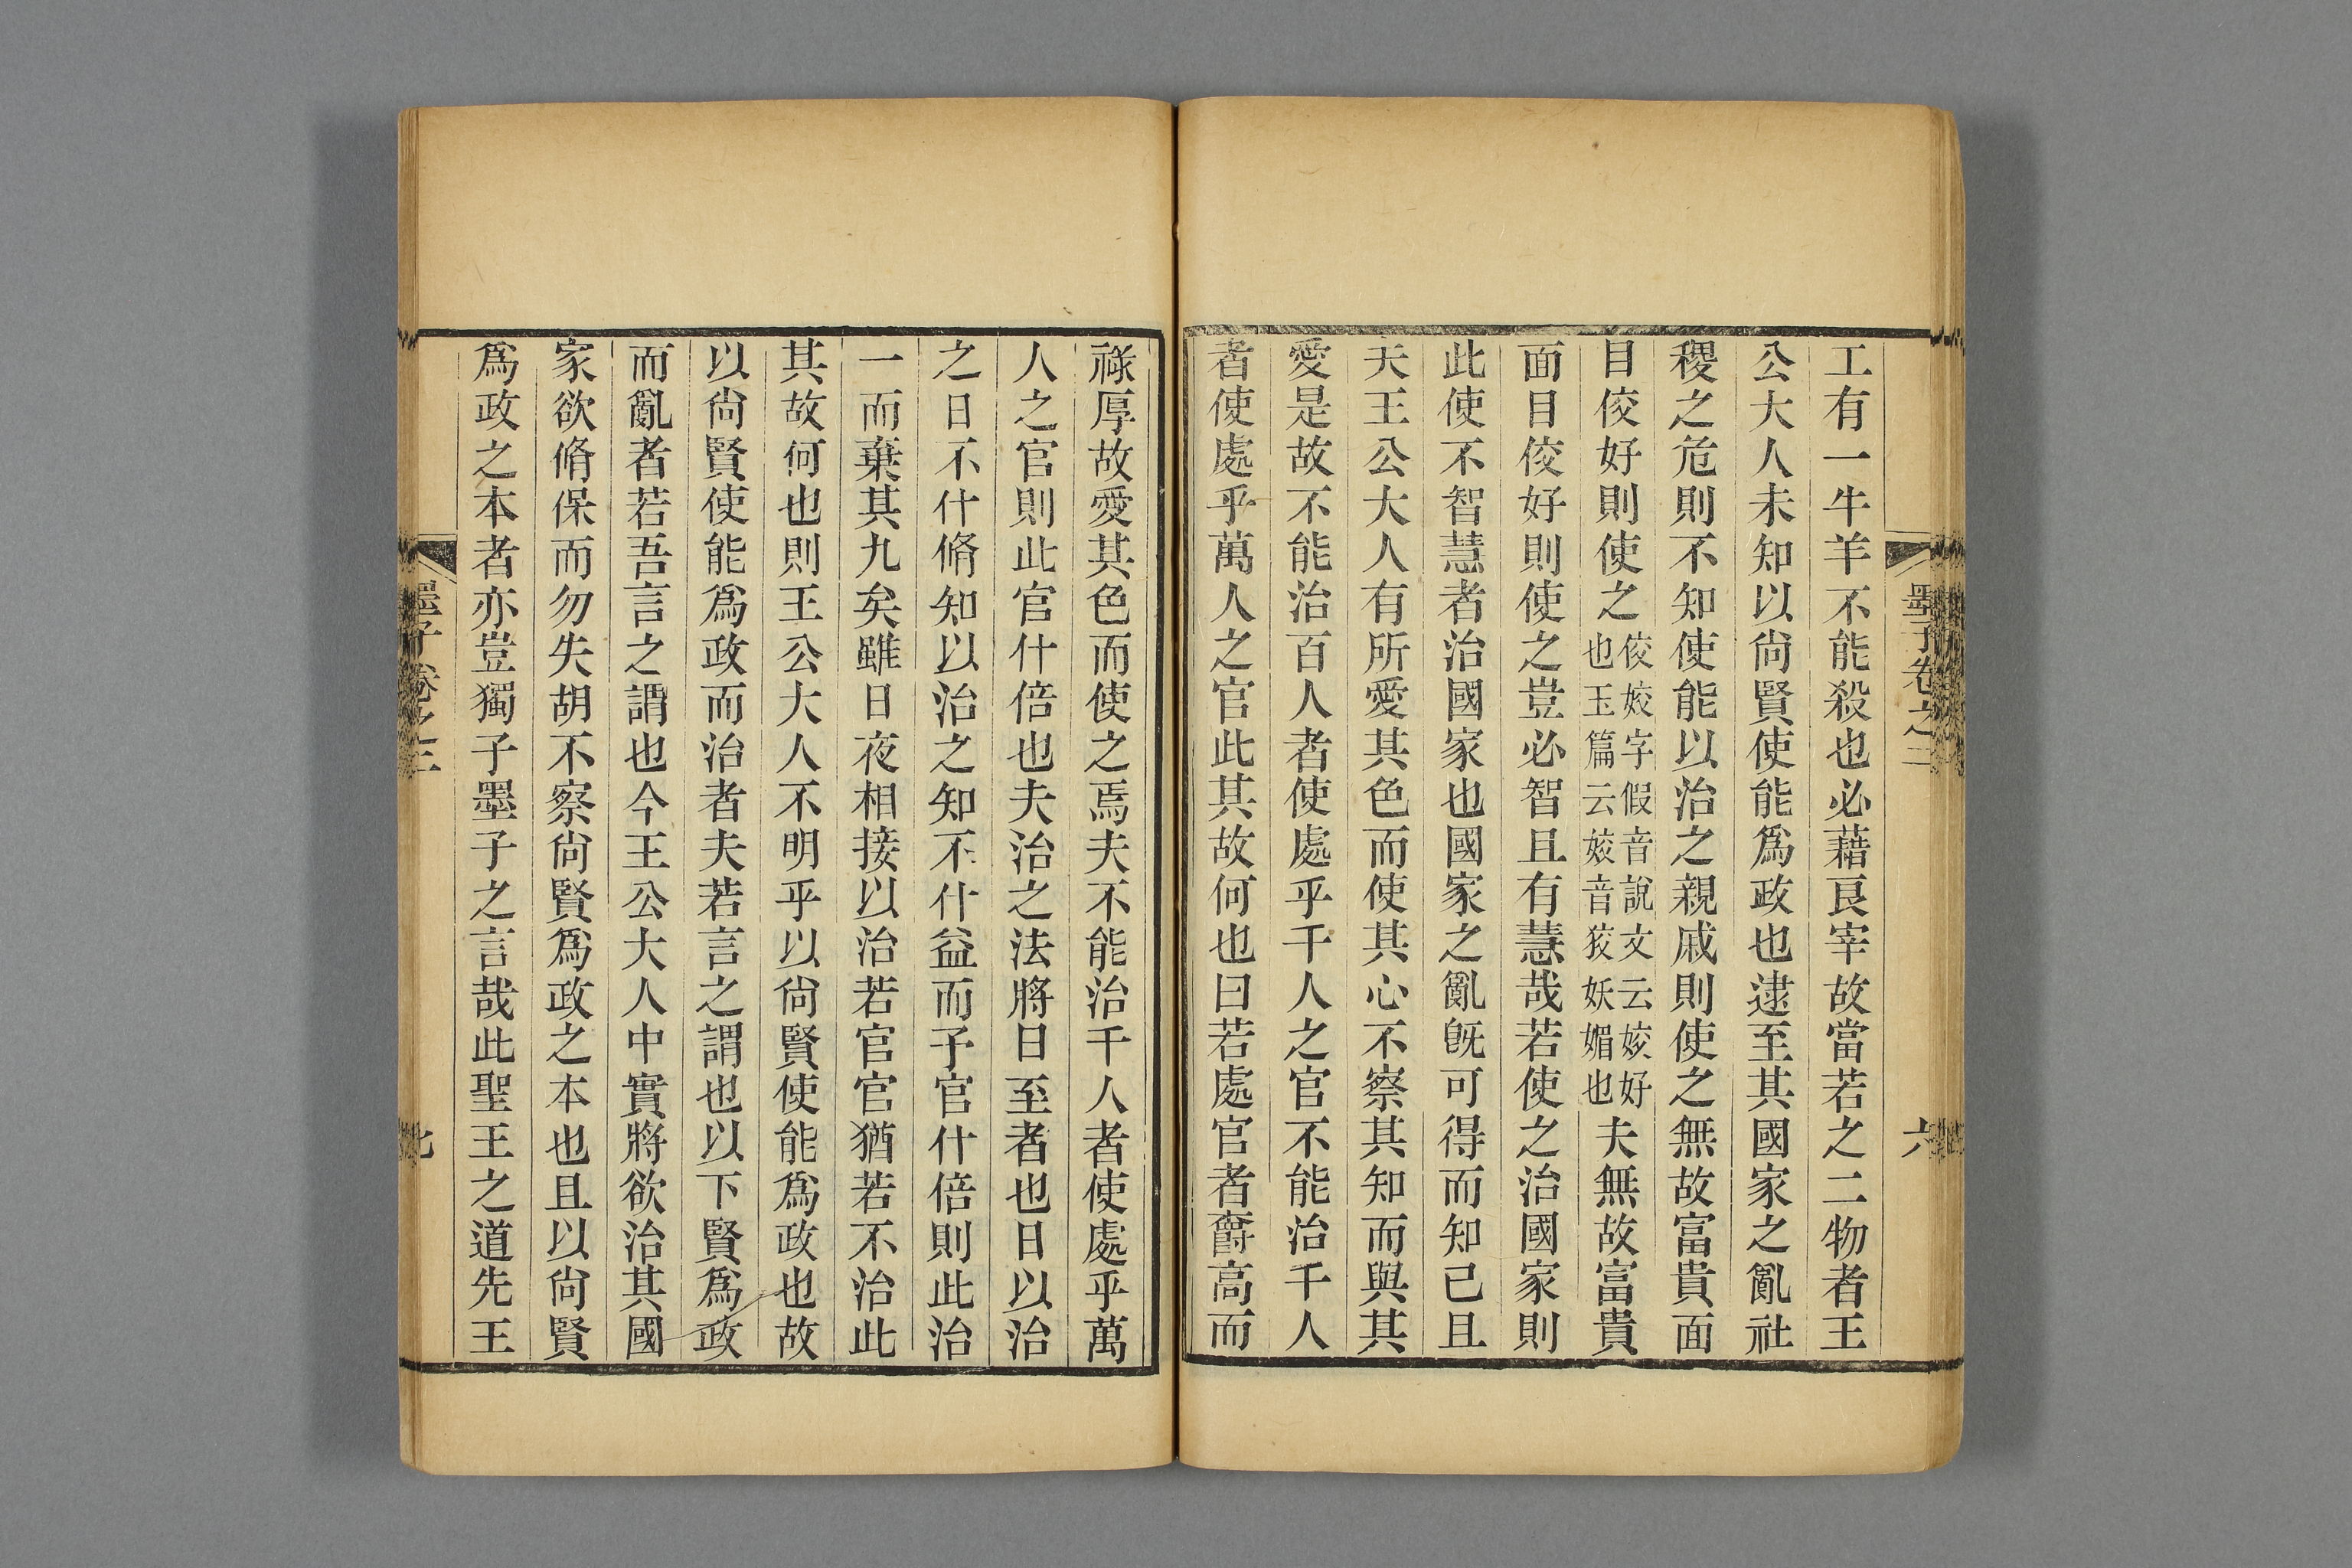 墨子卷之二
六
工有一牛羊不能殺也必藉良宰故當若之二物者王
公大人未知以尙賢使能爲政也逮至其國家之亂社
稷之危則不知使能以治之親戚則使之無故富貴面
目佼好則使之
佼姣字假音說文云姣好
也玉篇云姣音狡妖媚也
夫無故富貴
面目佼好則使之豈必智且有慧哉若使之治國家則
此使不智慧者治國家也國家之亂旣可得而知己且
夫王公大人有所愛其色而使其心不察其知而與其
愛是故不能治百人者使處乎千人之官不能治千人
者使處乎萬人之官此其故何也曰若處官者爵高而
祿厚故愛其色而使之焉夫不能治千人者使處乎萬
人之官則此官什倍也夫治之法將日至者也日以治
之日不什脩知以治之知不什益而予官什倍則此治
一而棄其九矣雖日夜相接以治若官官猶若不治此
其故何也則王公大人不明乎以尙賢使能爲政也故
以尙賢使能爲政而治者夫若言之謂也以下賢爲政
而亂者若吾言之謂也今王公大人中實將欲治其國
家欲脩保而勿失胡不察尙賢爲政之本也且以尙賢
爲政之本者亦豈獨子墨子之言哉此聖王之道先王
墨子卷之二